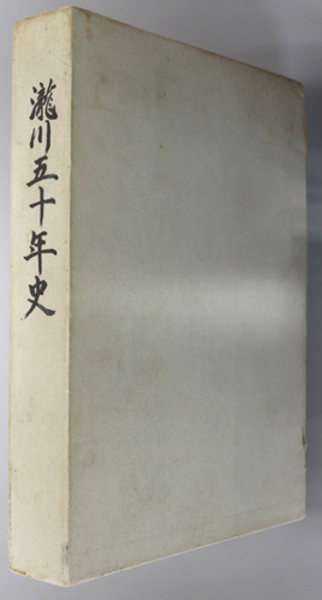 瀧川五十年史